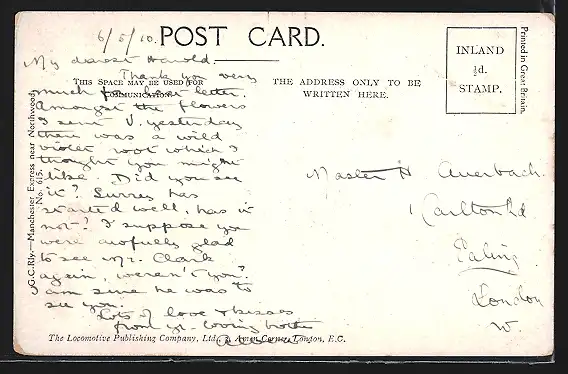 6/5/10.
POST CARD.
My dearest Harold.
Thank you very
THIS SPACE MAY BE USED FOR
COMMUNICATION.
much for letter.
Amongst the flowers
I sent V. yesterday
there was a wild
violet root which I
thought you might
like. Did you see
it? Surrey has
started well, has it
not? I suppose you
were awfully glad
to see Mr. Clark
again, weren't you?
I am sure he was to
see you.
Lots of love & kisses
from yr. loving
THE ADDRESS ONLY TO BE
WRITTEN HERE.
INLAND
½d.
STAMP.
Printed in Great Britain.
Master H Auerbach.
1 Carlton Rd
Ealing
London
W.
G.C.Rly.—Manchester Express near Northwood.
No. 615.
The Locomotive Publishing Company, Ltd., 3, Amen Corner, London, E.C.